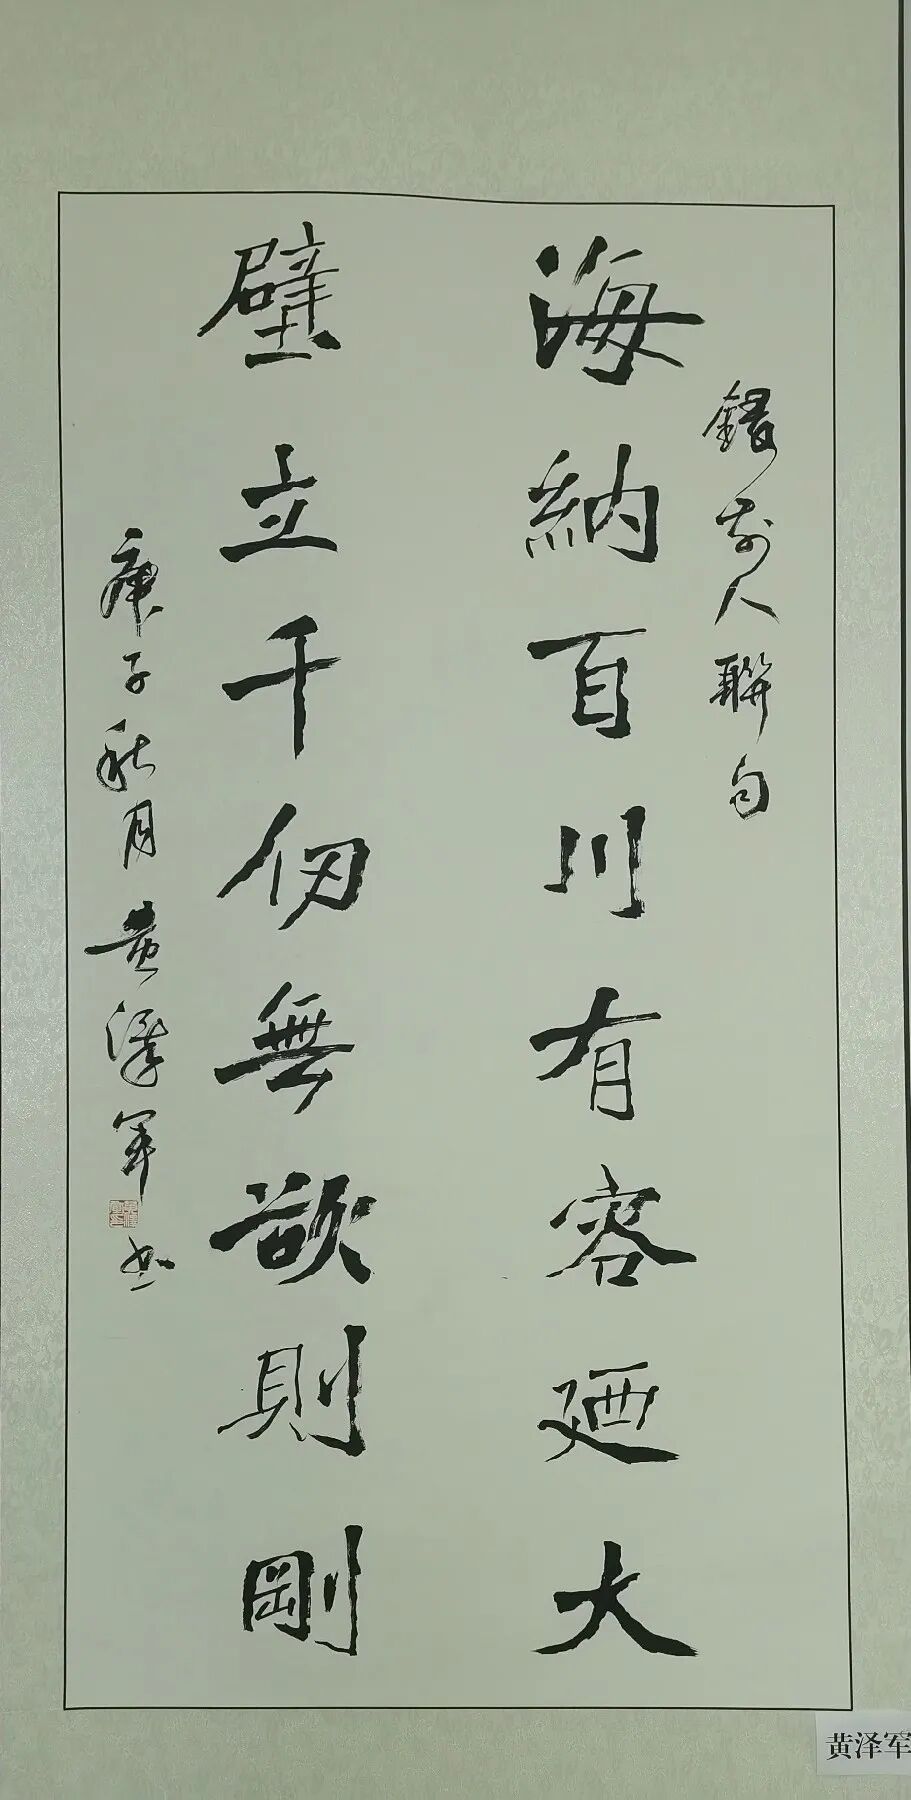 錄前人聯句
海納百川有容廼大
壁立千仞無欲則剛
庚子秋月黃澤軍書
黄泽军